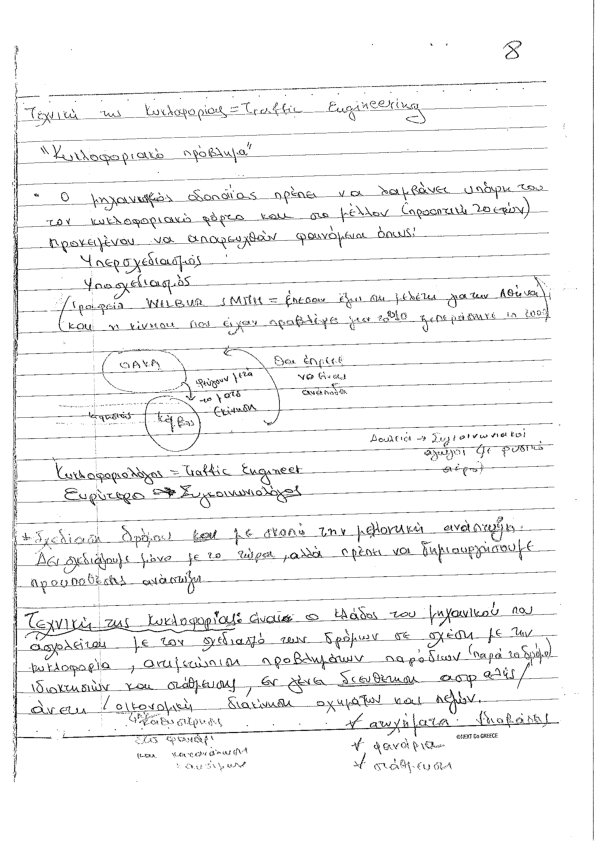 8
Τεχνική της Κυκλοφορίας = Traffic Engineering
"Κυκλοφοριακό πρόβλημα"
• Ο μηχανικός οδοποιίας πρέπει να λαμβάνει υπόψη του
τον κυκλοφοριακό φόρτο και στο μέλλον (προοπτική 20 ετών)
προκειμένου να αποφευχθούν φαινόμενα όπως:
Υπερσχεδιασμός
Υποσχεδιασμός
(Γραφείο WILBUR SMITH = έπεσαν έξω στη μελέτη για την Αθήνα)
(και η κίνηση που είχαν προβλέψει για το ξεπεράστηκε
ΟΑΚΑ
φεύγουν μετά
το ματς
Εκκίνηση
Κηφισιάς
Κάραβος
Θα έπρεπε
να είναι
ανάποδα
Δουλειά → Συγκοινωνιακοί
αγωγοί με φυσικό
αέριο
Κυκλοφοριολόγος = Traffic Engineer
Ευρύτερο → Συγκοινωνιολόγος
* Σχεδίαση δρόμου με σκοπό την μελλοντική ανάπτυξη.
Δεν σχεδιάζουμε μόνο με το τώρα, αλλά πρέπει να δημιουργήσουμε
προϋποθέσεις ανάπτυξης
Τεχνική της Κυκλοφορίας: είναι ο κλάδος του μηχανικού που
ασχολείται με τον σχεδιασμό των δρόμων σε σχέση με την
κυκλοφορία, αντιμετώπιση προβλημάτων παρόδιων (παρά το δρόμο)
ιδιοκτησιών και στάθμευσης, εν γένει διευθέτηση ασφαλής/
άνετη/οικονομική διακίνηση οχημάτων και πεζών.
καθυστέρηση
στο φανάρι
και κατανάλωση
καυσίμων
✓ ατυχήματα
✓ φανάρια
✓ στάθμευση
©NEXT Co GREECE